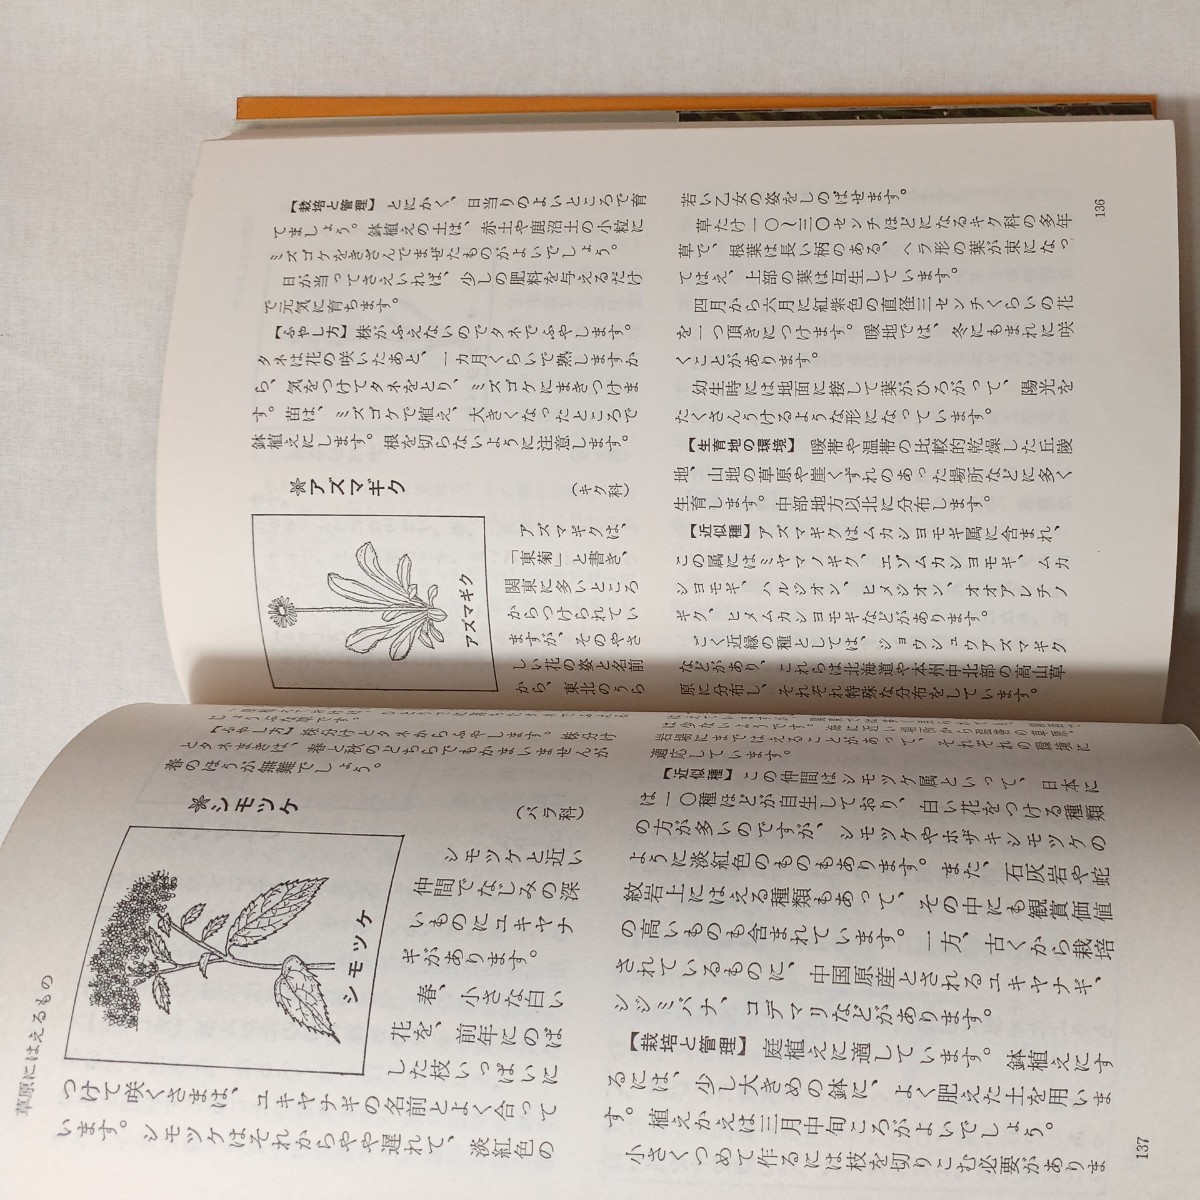 【栽培と管理】とにかく、日当りのよいところで育
てましょう。鉢植えの土は、赤土や鹿沼土の小粒に
ミズゴケをきざんでまぜたものがよいでしょう。
日が当ってさえいれば、少しの肥料を与えるだけ
で元気に育ちます。
【ふやし方】株がふえないのでタネでふやします。
タネは花の咲いたあと、一カ月くらいで熟しますか
ら、気をつけてタネをとり、ミズゴケにまきつけま
す。苗は、ミズゴケで植え、大きくなったところで
鉢植えにします。根を切らないように注意します。
※アズマギク
（キク科）
アズマギク
アズマギクは、
「東菊」と書き、
関東に多いところ
からつけられてい
ますが、そのやさ
しい花の姿と名前
から、東北のうら
若い乙女の姿をしのばせます。
草たけ一〇〜三〇センチほどになるキク科の多年
草で、根葉は長い柄のある、ヘラ形の葉が束になっ
てはえ、上部の葉は互生しています。
四月から六月に紅紫色の直径三センチくらいの花
を一つ頂きにつけます。暖地では、冬にもまれに咲
くことがあります。
幼生時には地面に接して葉がひろがって、陽光を
たくさんうけるような形になっています。
【生育地の環境】暖帯や温帯の比較的乾燥した丘陵
地、山地の草原や崖くずれのあった場所などに多く
生育します。中部地方以北に分布します。
【近似種】アズマギクはムカシヨモギ属に含まれ、
この属にはミヤマノギク、エゾムカシヨモギ、ムカ
シヨモギ、ハルジオン、ヒメジオン、オオアレチノ
ギク、ヒメムカシヨモギなどがあります。
ごく近縁の種としては、ジョウシュウアズマギク
などがあり、これらは北海道や本州中北部の高山草
原に分布し、それぞれ特殊な分布をしています。
136
じょうぶな草です。
【ふやし方】株分けとタネからふやします。株分け
とタネまきは、春と秋のどちらでもかまいませんが
春のほうが無難でしょう。
※シモツケ
（バラ科）
シモツケ
シモツケと近い
仲間でなじみの深
いものにユキヤナ
ギがあります。
春、小さな白い
花を、前年にのば
した枝いっぱいに
つけて咲くさまは、ユキヤナギの名前とよく合って
います。シモツケはそれからやや遅れて、淡紅色の
は少ないようです。
岩場にまではえることがあって、それぞれの環境に
適応しています。
【近似種】この仲間はシモツケ属といって、日本に
は一〇種ほどが自生しており、白い花をつける種類
の方が多いのですが、シモツケやホザキシモツケの
ように淡紅色のものもあります。また、石灰岩や蛇
紋岩上にはえる種類もあって、その中にも観賞価値
の高いものも含まれています。一方、古くから栽培
されているものに、中国原産とされるユキヤナギ、
シジミバナ、コデマリなどがあります。
【栽培と管理】庭植えに適しています。鉢植えにす
るには、少し大きめの鉢に、よく肥えた土を用いま
す。植えかえは三月中旬ころがよいでしょう。
小さくつめて作るには枝を切りこむ必要がありま
草原にはえるもの
137